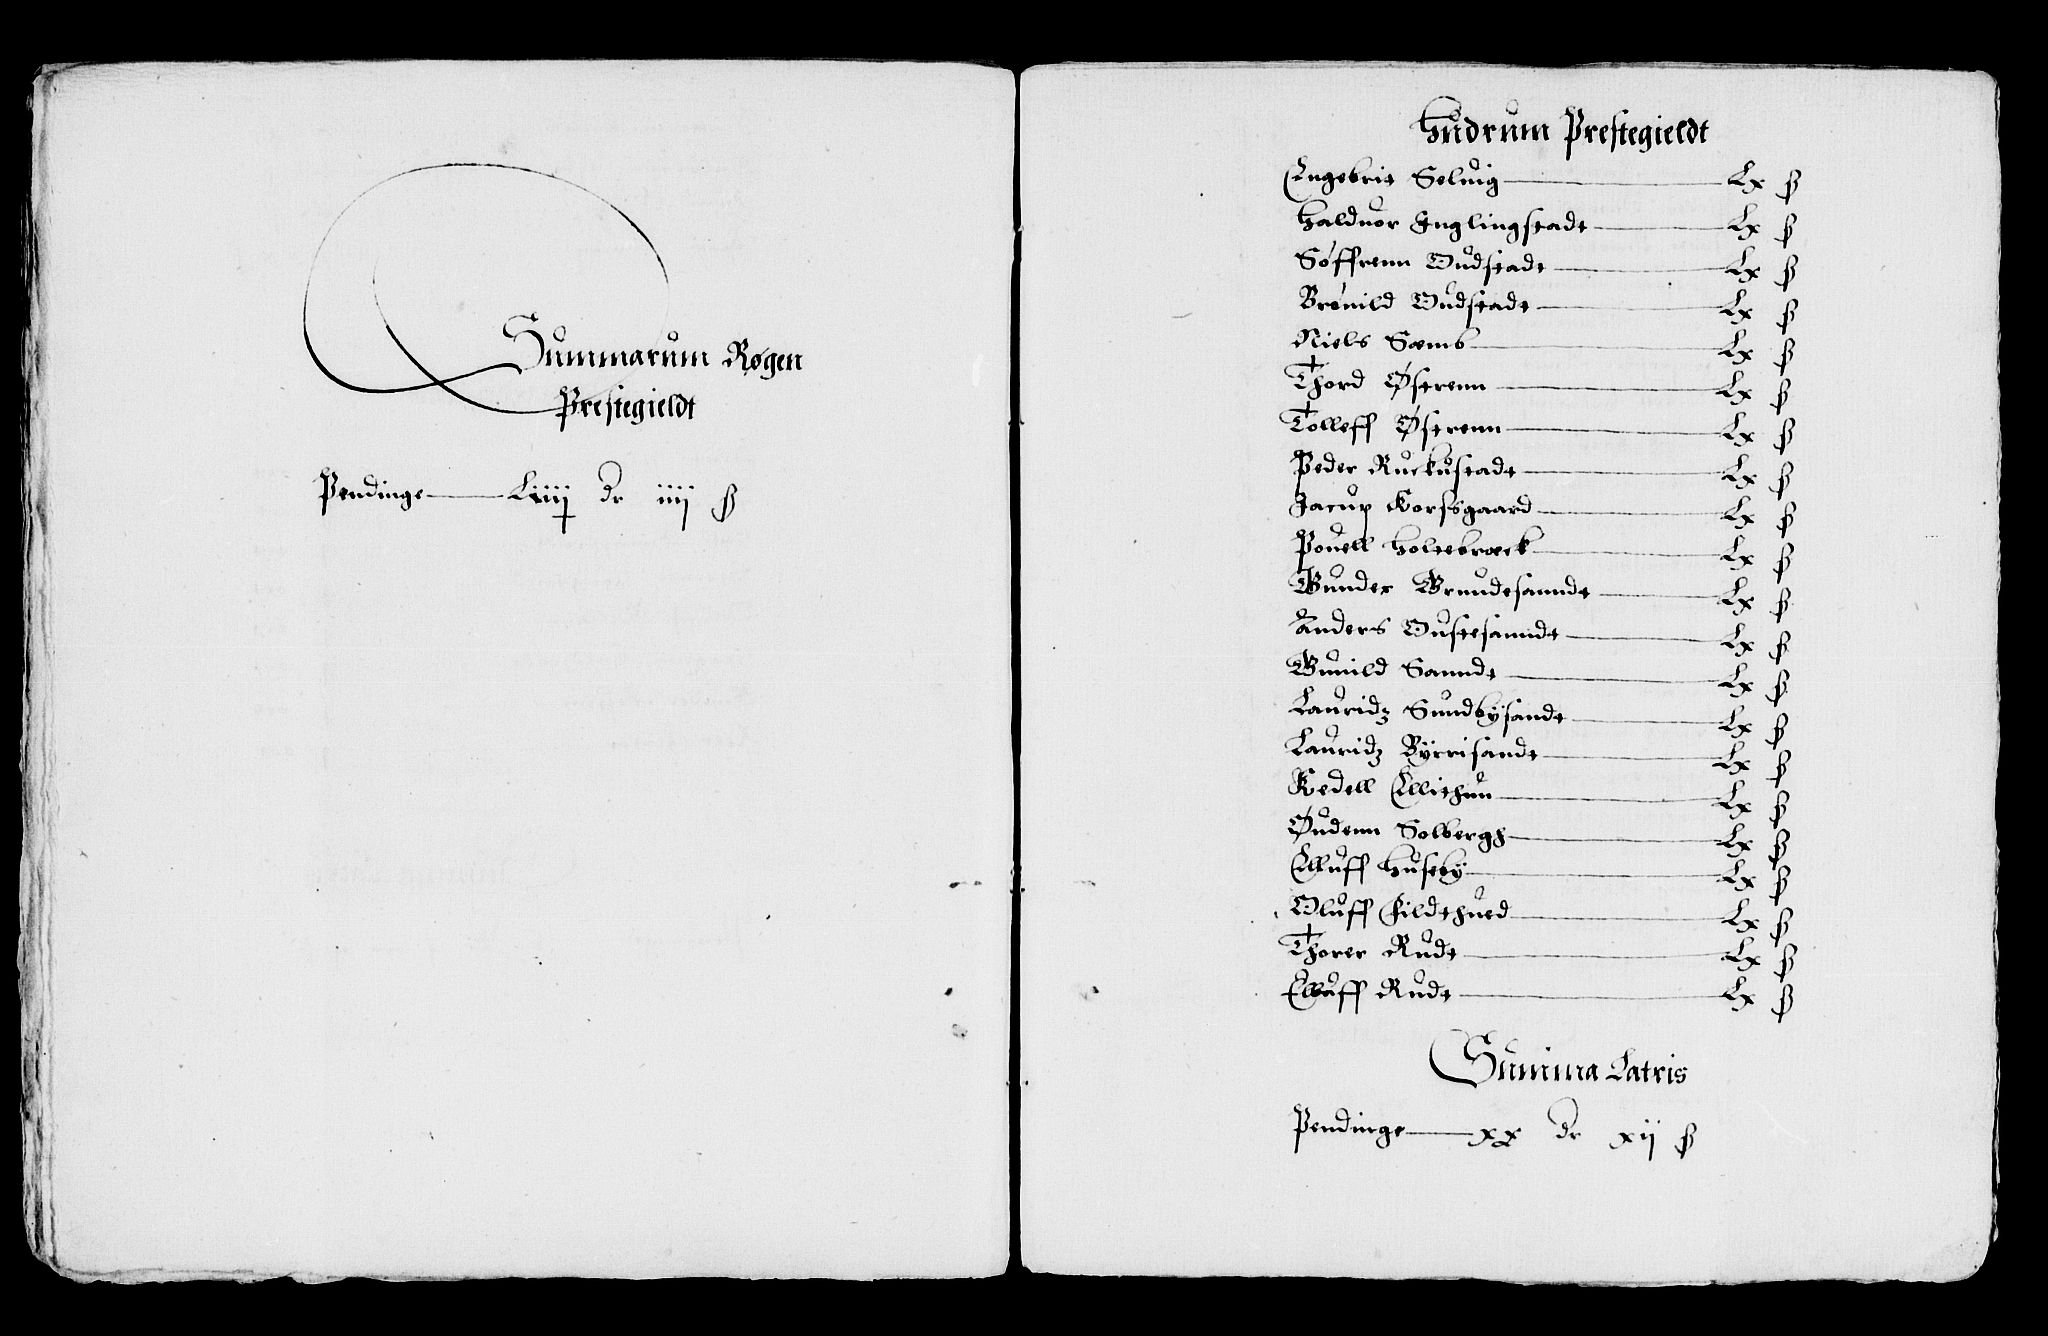 Summarum Røgen
Prestegieldt
Pendinge Liiij dr iiij ß
Hudrum Prestegieldt
Engebrit Seluig Lx ß
Halduor Englingstadt Lx ß
Søffrenn Oudstadt Lx ß
Brønild Oudstadt Lx ß
Niels Sæmb Lx ß
Thord Østrenn Lx ß
Tolleff Østrenn Lx ß
Peder Ruckustadt Lx ß
Jacup Korssgaard Lx ß
Pouell Holtebræck Lx ß
Gunder Grundesanndt Lx ß
Anders Oustesanndt Lx ß
Gunild Sanndt Lx ß
Lauridz Sundbÿsandt Lx ß
Lauridz Bÿrrisandt Lx ß
Kedell Ellithun Lx ß
Øudenn Solbergh Lx ß
Elluff Husebÿ Lx ß
Oluff Fildthued Lx ß
Thorer Rudt Lx ß
Elluff Rudt Lx ß
Summa Latris
Pendinge xx dr xij ß